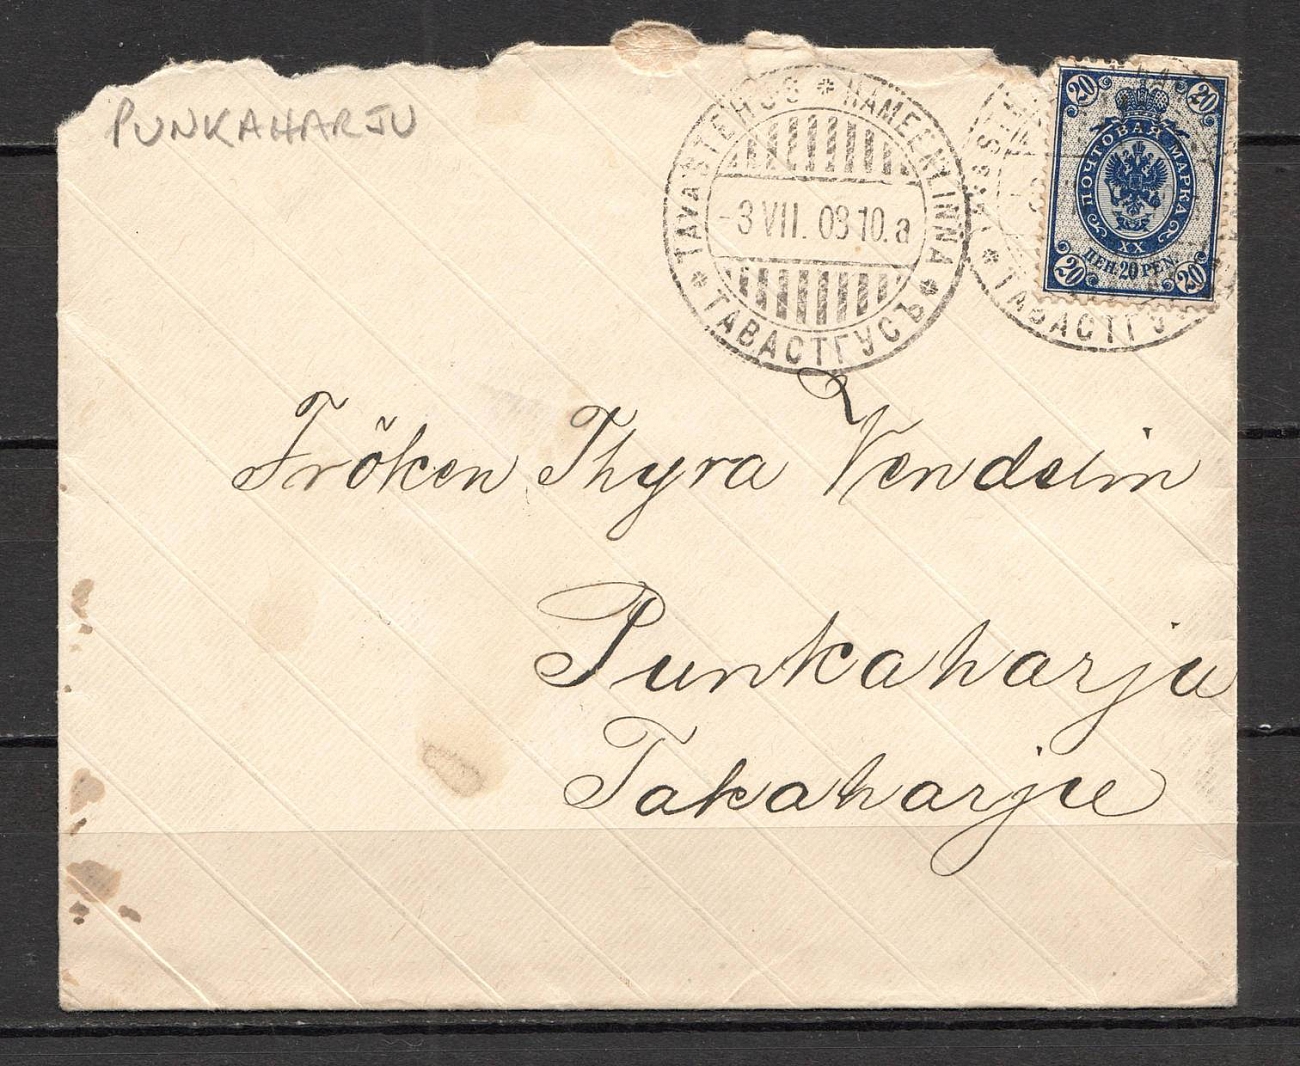 PUNKAHARJU
TAVASTEHUS * HÄMEENLINNA
-3 VII. 08 10. a
* ТАВАСТГУСЪ *
20 20
ПОЧТОВАЯ МАРКА
XX
ПЕН. 20 PEN.
20 20
* ТАВАСТГУ
Fröken Thyra Vendelin
Punkaharju
Takaharju